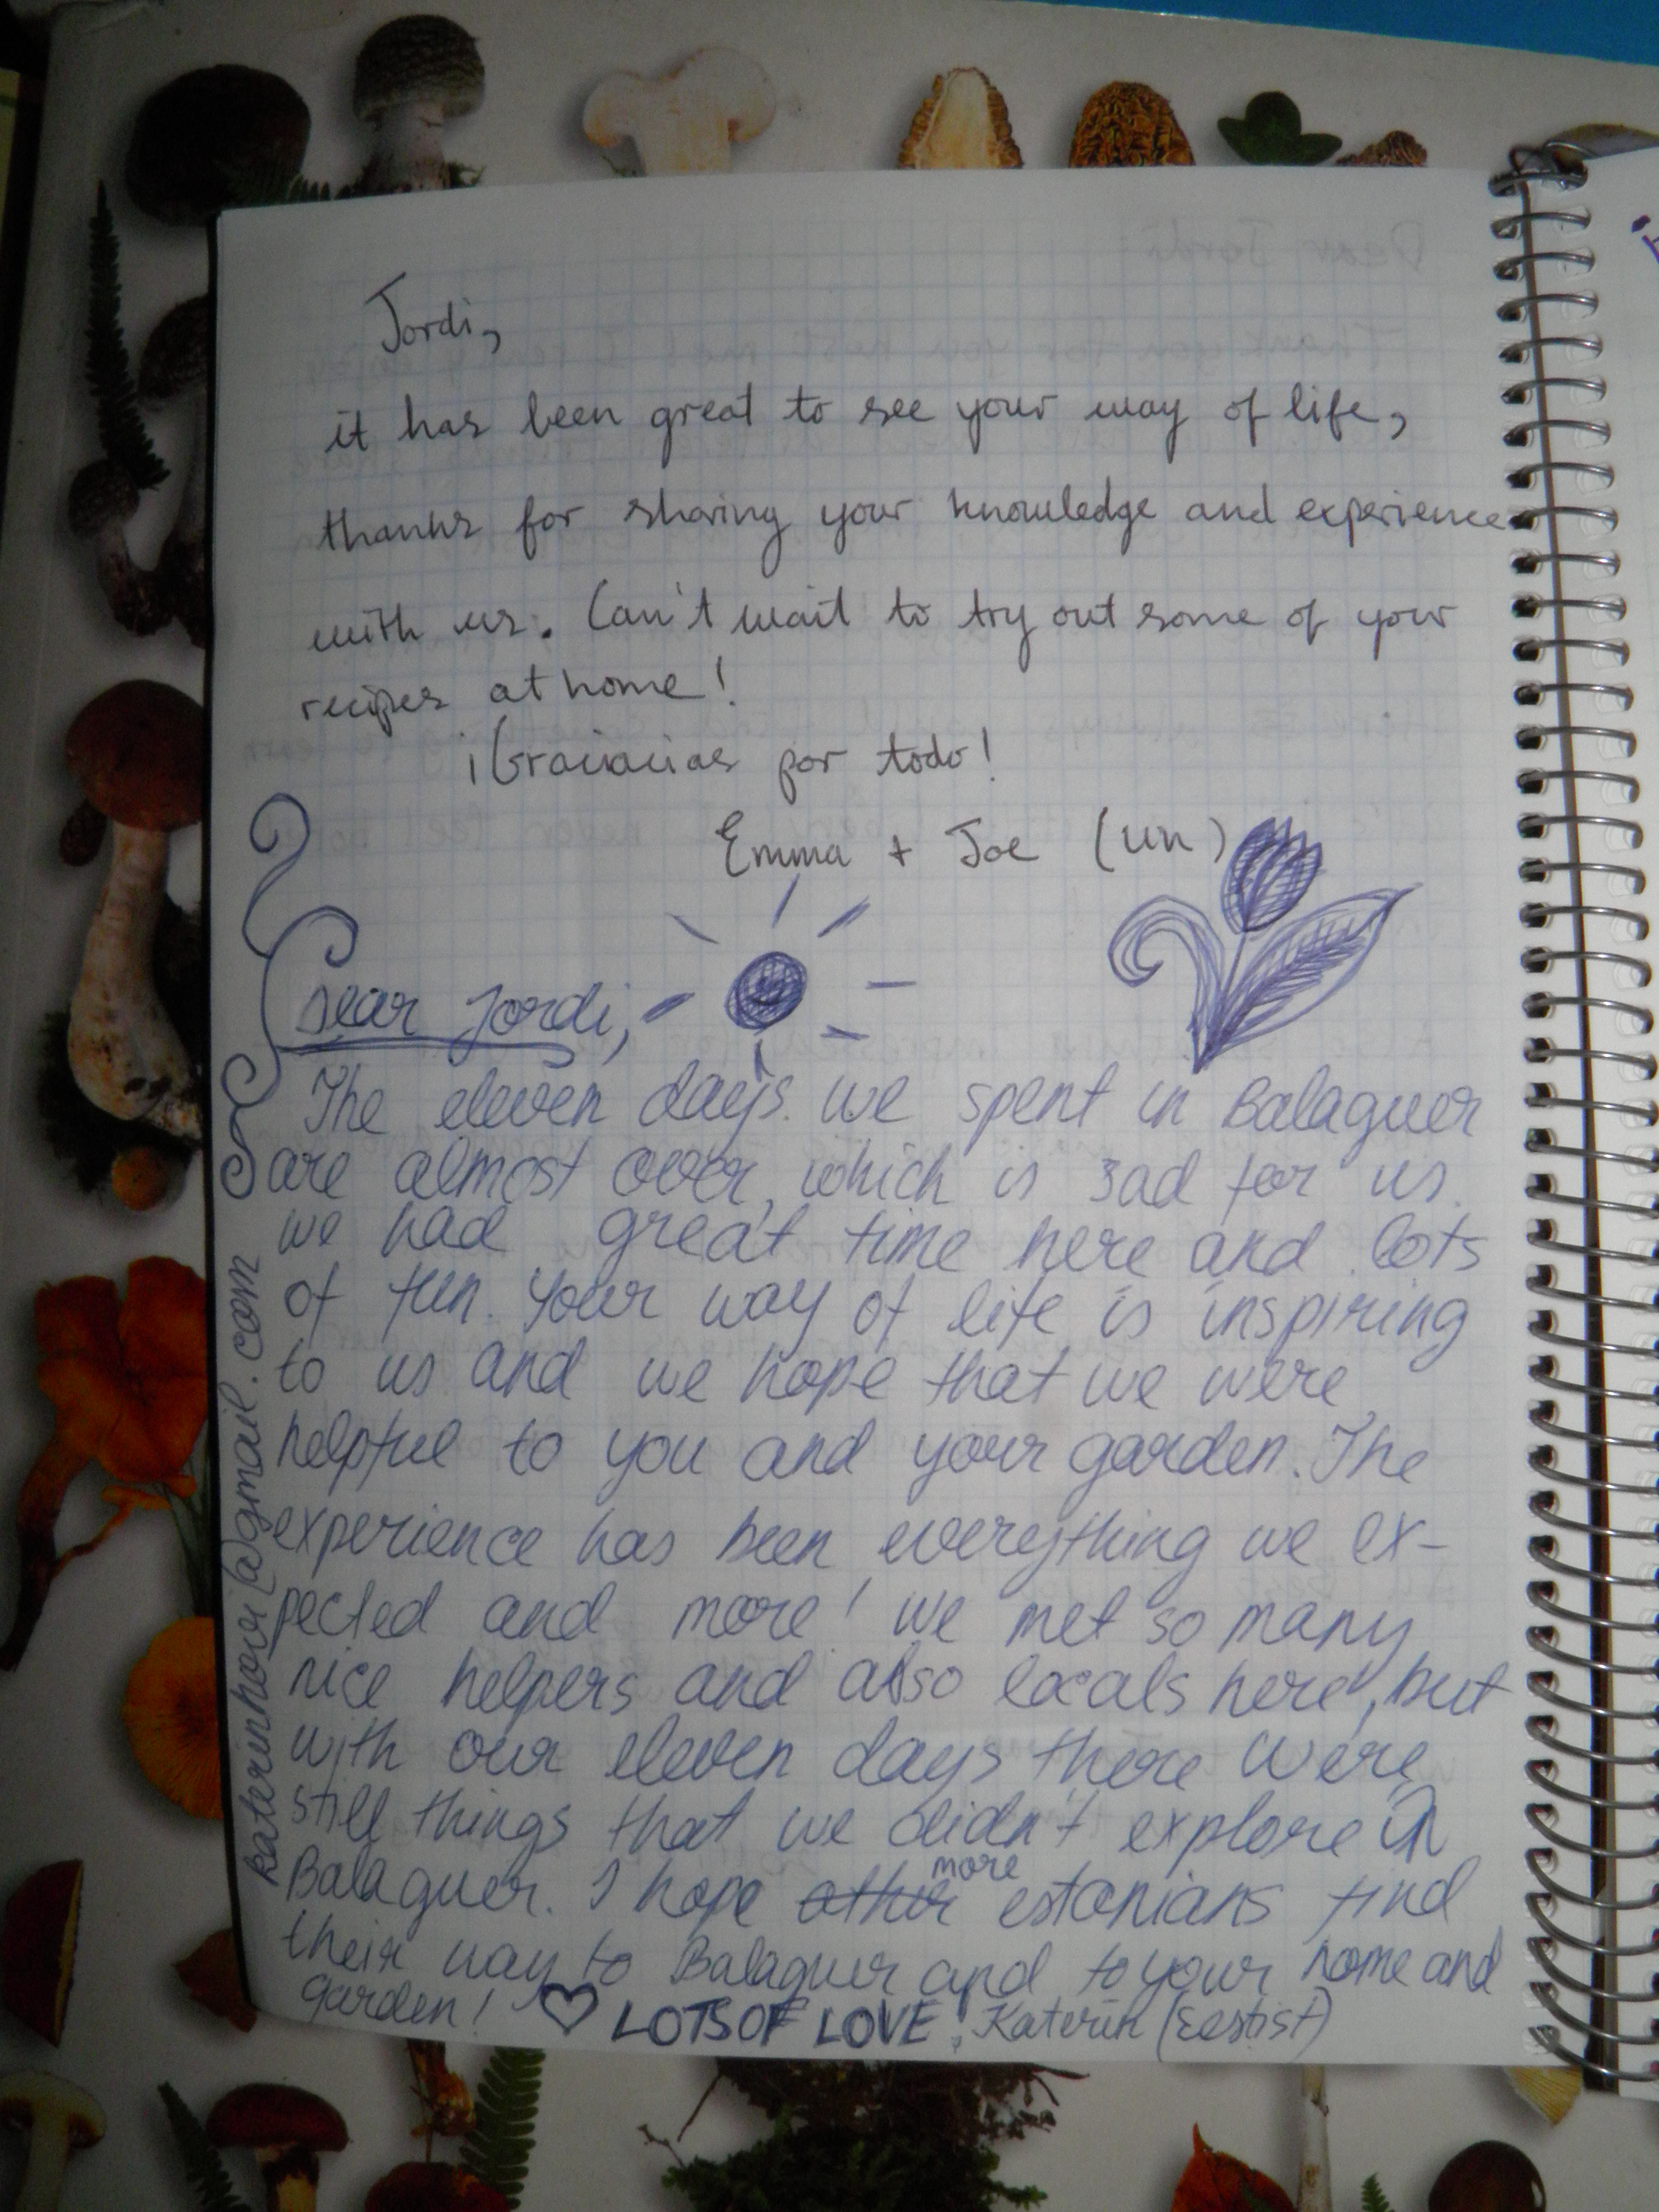 Jordi,
it has been great to see your way of life,
thanks for sharing your knowledge and experience
with us. Can't wait to try out some of your
recipes at home!
¡Graciacias por todo!
Emma + Joe (UK)
Dear Jordi,
The eleven days we spent in Balaguer
are almost over, which is sad for us.
We had great time here and lots
of fun. Your way of life is inspiring
to us and we hope that we were
helpful to you and your garden. The
experience has been everything we ex-
pected and more! We met so many
nice helpers and also locals here, but
with our eleven days there were
still things that we didn't explore in
Balaguer. I hope other more estonians find
their way to Balaguer and to your home and
garden! ♡ LOTS OF LOVE! Katerin (Eestist)